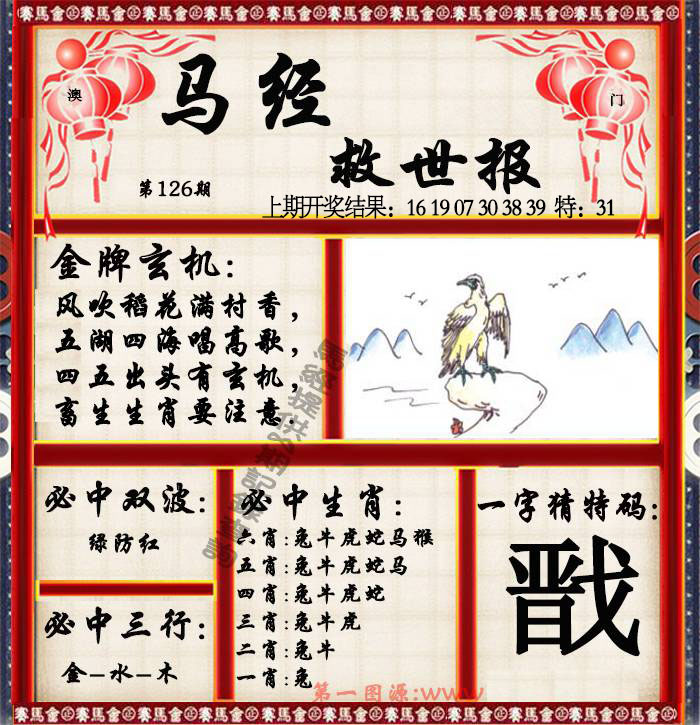 澳
门
马经
救世报
第126期
上期开奖结果：16 19 07 30 38 39 特：31
金牌玄机：
风吹稻花满村香，
五湖四海唱高歌，
四五出头有玄机，
畜生生肖要注意.
必中双波：
绿防红
必中三行：
金–水–木
必中生肖：
六肖:兔牛虎蛇马猴
五肖:兔牛虎蛇马
四肖:兔牛虎蛇
三肖:兔牛虎
二肖:兔牛
一肖:兔
一字猜特码：
戬
第一图源:www